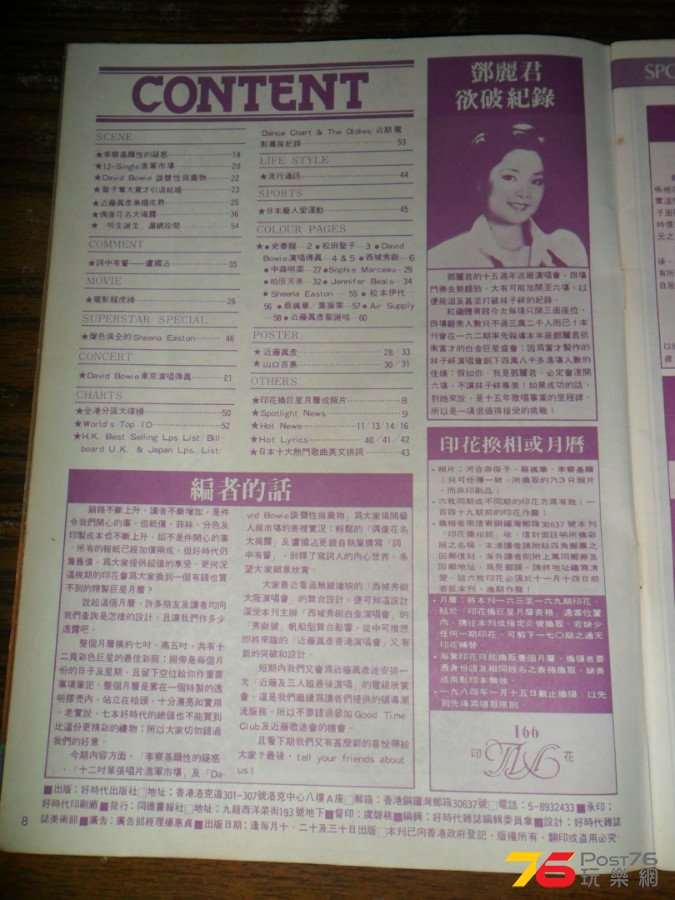 CONTENT
SCENE
★李察基爾性的疑惑 18
★12-Single進軍市場 20
★David Bowie 談雙性與藥物 22
★聖子奪大賞才引退結婚 23
★近藤眞彥漸趨成熟 25
★偶像花名大揭露 36
54
COMMENT
★詞中有誓——盧國沾 35
MOVIE
★電影龍虎榜 26
SUPERSTAR SPECIAL
★聲色俱全的Sheena Easton 46
CONCERT
★David Bowie東京演唱傳眞 21
CHARTS
★全港分區大碟榜 50
★World's Top 10 52
★H.K. Best Selling Lps List, Bill-
board U.K. & Japan Lps. List,
Dance Chart & The Oldies 近期電
影票房紀錄 53
LIFE STYLE
★流行通訊 44
SPORTS
★日本藝人愛運動 45
COLOUR PAGES
★●史泰龍—2●松田聖子—3●David
Bowie演唱傳眞—4 & 5●西城秀樹—6
●中森明菜—27●Sophie Marceau—29
●柏原芳惠—32●Jennifer Beals—34
●Sheena Easton—55●松本伊代—
56●蔡楓華、葉振棠—57●Air Supply
—58●近藤眞彥聖誕咭—60
POSTER
★近藤眞彥 28 33
★山口百惠 30 31
OTHERS
★印花換巨星月曆或照片 8
★Spotlight News 9
★Hot News 11/13/14/16
★Hot Lyrics 40/41/42
★日本十大熱門歌曲英文拼詞 43
鄧麗君
欲破紀錄
鄧麗君的十五週年巡廻演唱會，四場
門券去勢頗勁，大有可能加開至六場，以
便能追及甚至打破林子祥的紀錄。
紅磡體育館今次每場只開三面座位，
四場觀衆人數只不過三萬二千人而已！本
刊曾在一六二期率先報導本年底鄧麗君抗
衡富才的白金巨星盛會；因爲富才製作的
林子祥演唱會創下四萬八千多進場人數的
佳績；假如你、我是鄧麗君，必定會連開
六場，不讓林子祥專美！如果成功的話，
對她來說，是十五年歌唱事業的里程碑，
所以是一項很値得接受的挑戰！
印花換相或月曆
●相片：河合奈保子、蔡楓華、李察基爾
（只可任擇一款，所換取的乃3R照片
，而非印刷品）
●六枚同期或不同期的印花方爲有效（一
百四十九期前的印花作廢）
●換相者來信寄銅鑼灣郵箱30637號本刊
「印花換相部」收，信封面註明所換彩
照之名稱，本港讀者請附貼四角郵票之
回郵信封，海外讀者則附上萬國郵券及
回郵地址，爲免郵誤，請將地址繕寫清
楚，該六枚印花必須於十一月十四日前
寄抵本刊，逾期作廢！
●月曆：將本刊一六三至一六九期印花，
貼於「印花換巨星月曆表格」適當位置
內，携往本刊或指定商號換取，若缺少
任何一期印花，可剪下一七〇期之通天
印花補替。
●每套印花只能換壹個月曆，換領者要
憑身份證及相同姓名之表格換取，缺表
或用影印本無效。
●一九八四年一月十五日截止換領，以先
到先得爲領取原則。
166
印 花
編者的話
銷路不斷上升、讀者不斷增加，是件
令我們開心的事。但紙價、菲林、分色及
印製成本也不斷上升，却不是件開心的事
。所有的報紙已經加價兩成，但好時代仍
舊舊價，爲大家提供超値的享受，更何況
這幾期的印花會爲大家換到一個有錢也買
不到的精製巨星月曆？
說起這個月曆，許多朋友及讀者均向
我們查詢是怎樣的設計，且讓我們作多少
透露吧。
整個月曆橫約七吋、高五吋，共有十
二頁彩色巨星的最佳彩照；照旁是每個月
份的日子及星期，且留下空位給你作重要
事項筆記。整個月曆是套在一個特製的透
明膠壳內，站立在枱頭，十分漂亮和實用
。老實說，七本好時代的總値也不能買到
比這份更精彩的禮物；所以大家切勿錯過
我們的好意。
今期內容方面，「李察基爾性的疑惑
」、「十二吋單張唱片進軍市場」及「Da-
vid Bowie談雙性與藥物」爲大家揭開藝
人與市場的表裡實況；輕鬆的「偶像花名
大揭露」及盧國沾更親自執筆撰寫「詞
中有誓」，剖釋了寫詞人的內心世界，希
望大家細意欣賞。
大家最近看過無綫播映的「西城秀樹
大阪演唱會」的舞台設計，便可知道設計
深受本刊主辦「西城秀樹白金演唱會」的
「秀樹號」帆船型舞台影響，從中可推想
即將來臨的「近藤眞彥香港演唱會」又有
新的突破和設計。
短期內我們又會爲近藤眞彥迷安排一
次「近藤及三人組最後演唱」的電視欣賞
會，這是我們繼續爲讀者們提供的領導潮
流服務，所以不要錯過參加Good Time
Club及近藤歌迷會的機會。
且看下期我們又有甚麼新的喜悅帶給
大家？最後，tell your friends about
us！
■出版：好時代出版社□地址：香港洛克道301-307號洛克中心八樓A座□郵箱：香港銅鑼灣郵箱30637號□電話：5-8932433■承印：
好時代印刷廠■發行：同德書報社□地址：九龍西洋菜街193號地下■督印：虞碧桃■編輯：好時代雜誌編輯委員會■設計：好時代雜
誌美術部■廣告：廣告部經理楊惠貞■出版日期：逢每月十、二十及三十日出版□本刊已向香港政府登記，版權所有，翻印或盜用必究
8
SPO
76 Post76
玩樂網